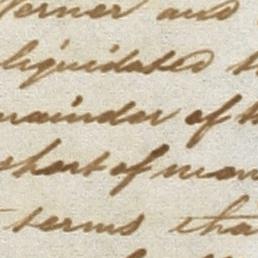 Verner and
liquidated
mainder of th
short of mon
terms tha